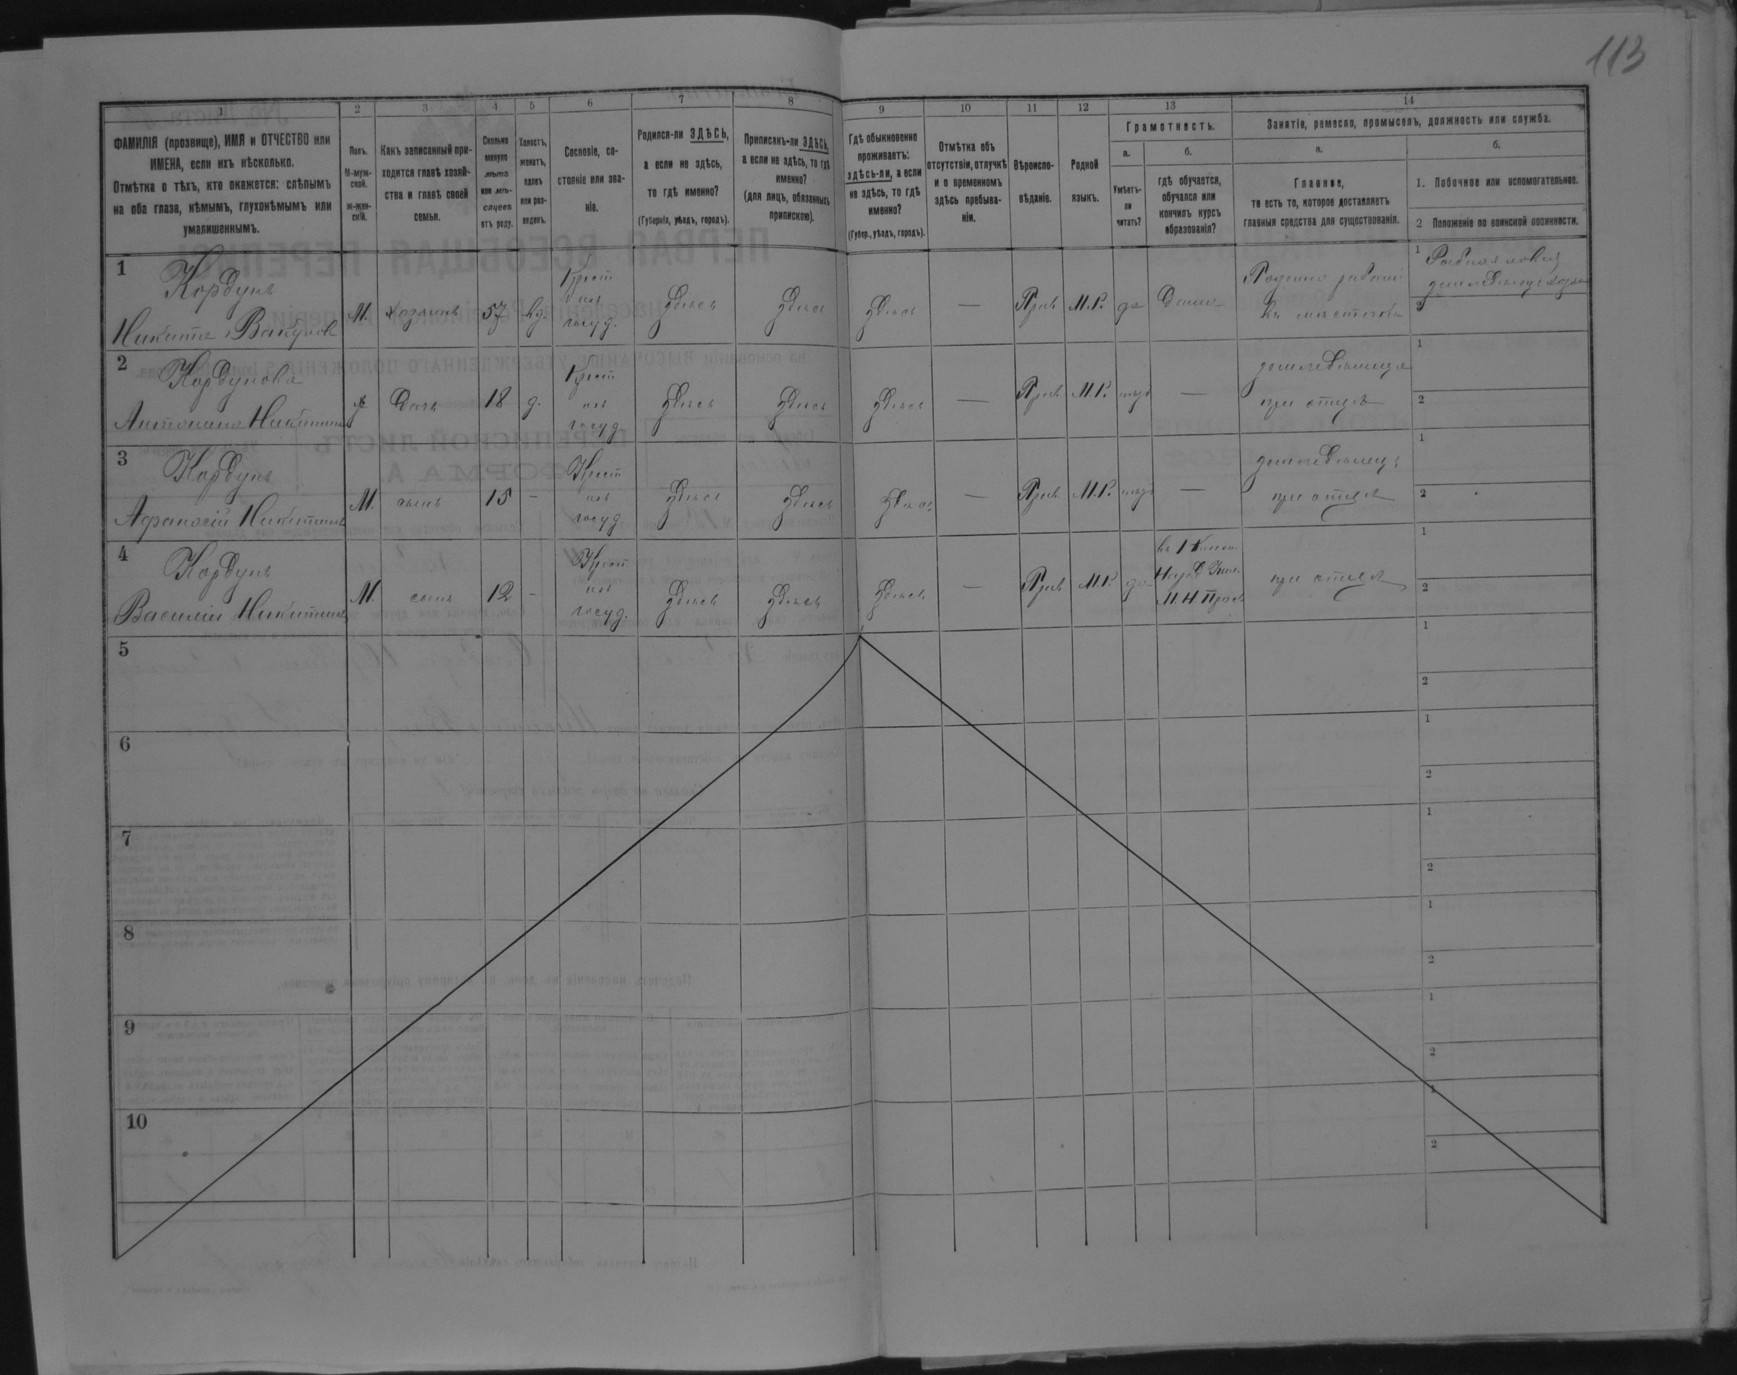 113
1 2 3 4 5 6 7 8 9 10 11 12 13 14
ФАМИЛІЯ (прозвище), ИМЯ и ОТЧЕСТВО или
ИМЕНА, если ихъ нѣсколько.
Отмѣтка о тѣхъ, кто окажется: слѣпымъ
на оба глаза, нѣмымъ, глухонѣмымъ или
умалишеннымъ.
Полъ.
М-муж-
ской.
Ж-жен-
скій.
Какъ записанный при-
ходится главѣ хозяй-
ства и главѣ своей
семьи.
Сколько
минуло
лѣтъ
или мѣ-
сяцевъ
отъ роду.
Холостъ,
женатъ,
вдовъ
или раз-
веденъ.
Сословіе, со-
стояніе или зва-
ніе.
Родился-ли ЗДѢСЬ,
а если не здѣсь,
то гдѣ именно?
(Губернія, уѣздъ, городъ).
Приписанъ-ли ЗДѢСЬ,
а если не здѣсь, то гдѣ
именно?
(для лицъ, обязанныхъ
припискою).
Гдѣ обыкновенно
проживаетъ:
здѣсь-ли, а если
не здѣсь, то гдѣ
именно?
(Губер., уѣздъ, городъ).
Отмѣтка объ
отсутствіи, отлучкѣ
и о временномъ
здѣсь пребыва-
ніи.
Вѣроиспо-
вѣданіе.
Родной
языкъ.
Грамотность.
а.
Умѣетъ-
ли
читать?
б.
гдѣ обучается,
обучался или
кончилъ курсъ
образованія?
Занятіе, ремесло, промыселъ, должность или служба.
а.
Главное,
то есть то, которое доставляетъ
главныя средства для существованія.
б.
1. Побочное или вспомогательное.
2 Положеніе по воинской повинности.
1
Кордунъ
Никита
М. хозяинъ 57 вд. Крест
госуд.
Здѣсь Здѣсь Здѣсь — Прав М.Р. да Дома
1
2
2
Кордунова
Антонина Никитина
ж Дочь 18 д. Крест
изъ
госуд
Здѣсь Здѣсь Здѣсь — Прав М.Р. нѣтъ —
при отцѣ
1
2
3
Кордунъ
Афанасій Никитинъ
М. сынъ 15 - Крест
изъ
госуд
Здѣсь Здѣсь Здѣсь — Прав М.Р. нѣтъ —
при отцѣ
1
2
4
Кордунъ
Василій Никитинъ
М. сынъ 12 - Крест
изъ
госуд.
Здѣсь Здѣсь Здѣсь — Прав М.Р. да
Народ
при отцѣ
1
2
5
1
2
6
1
2
7
1
2
8
1
2
9
1
2
10
1
2